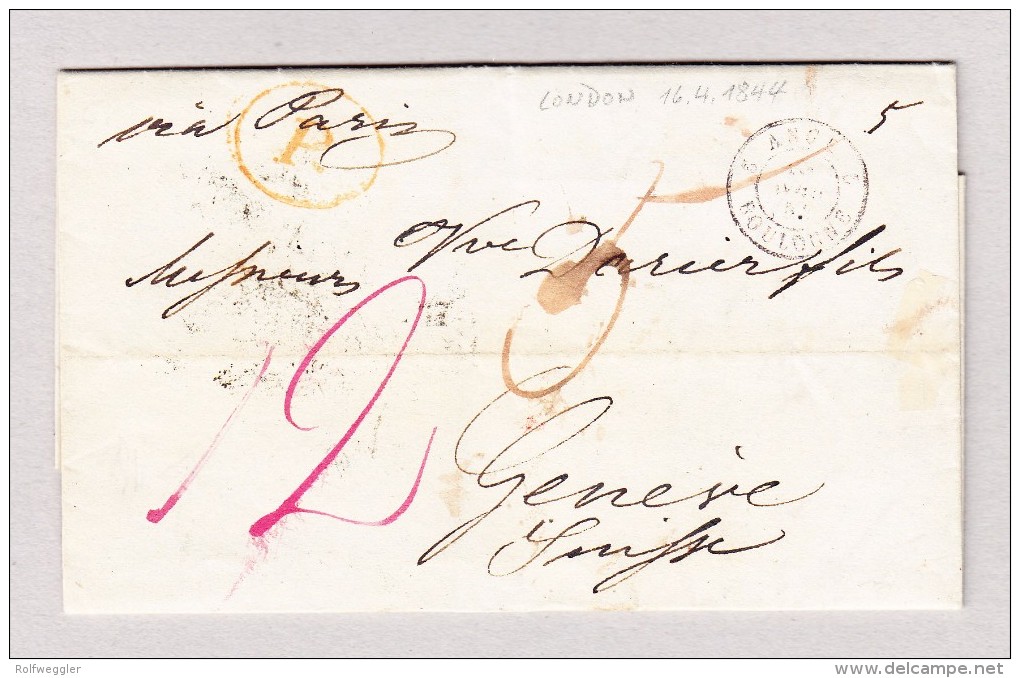 LONDON 16.4.1844
5
via Paris
P.
ANGL.
BOULOGNE
Messieurs Vve Darier fils
12
5
Genève
Suisse
Rolfweggler
delcampe.net